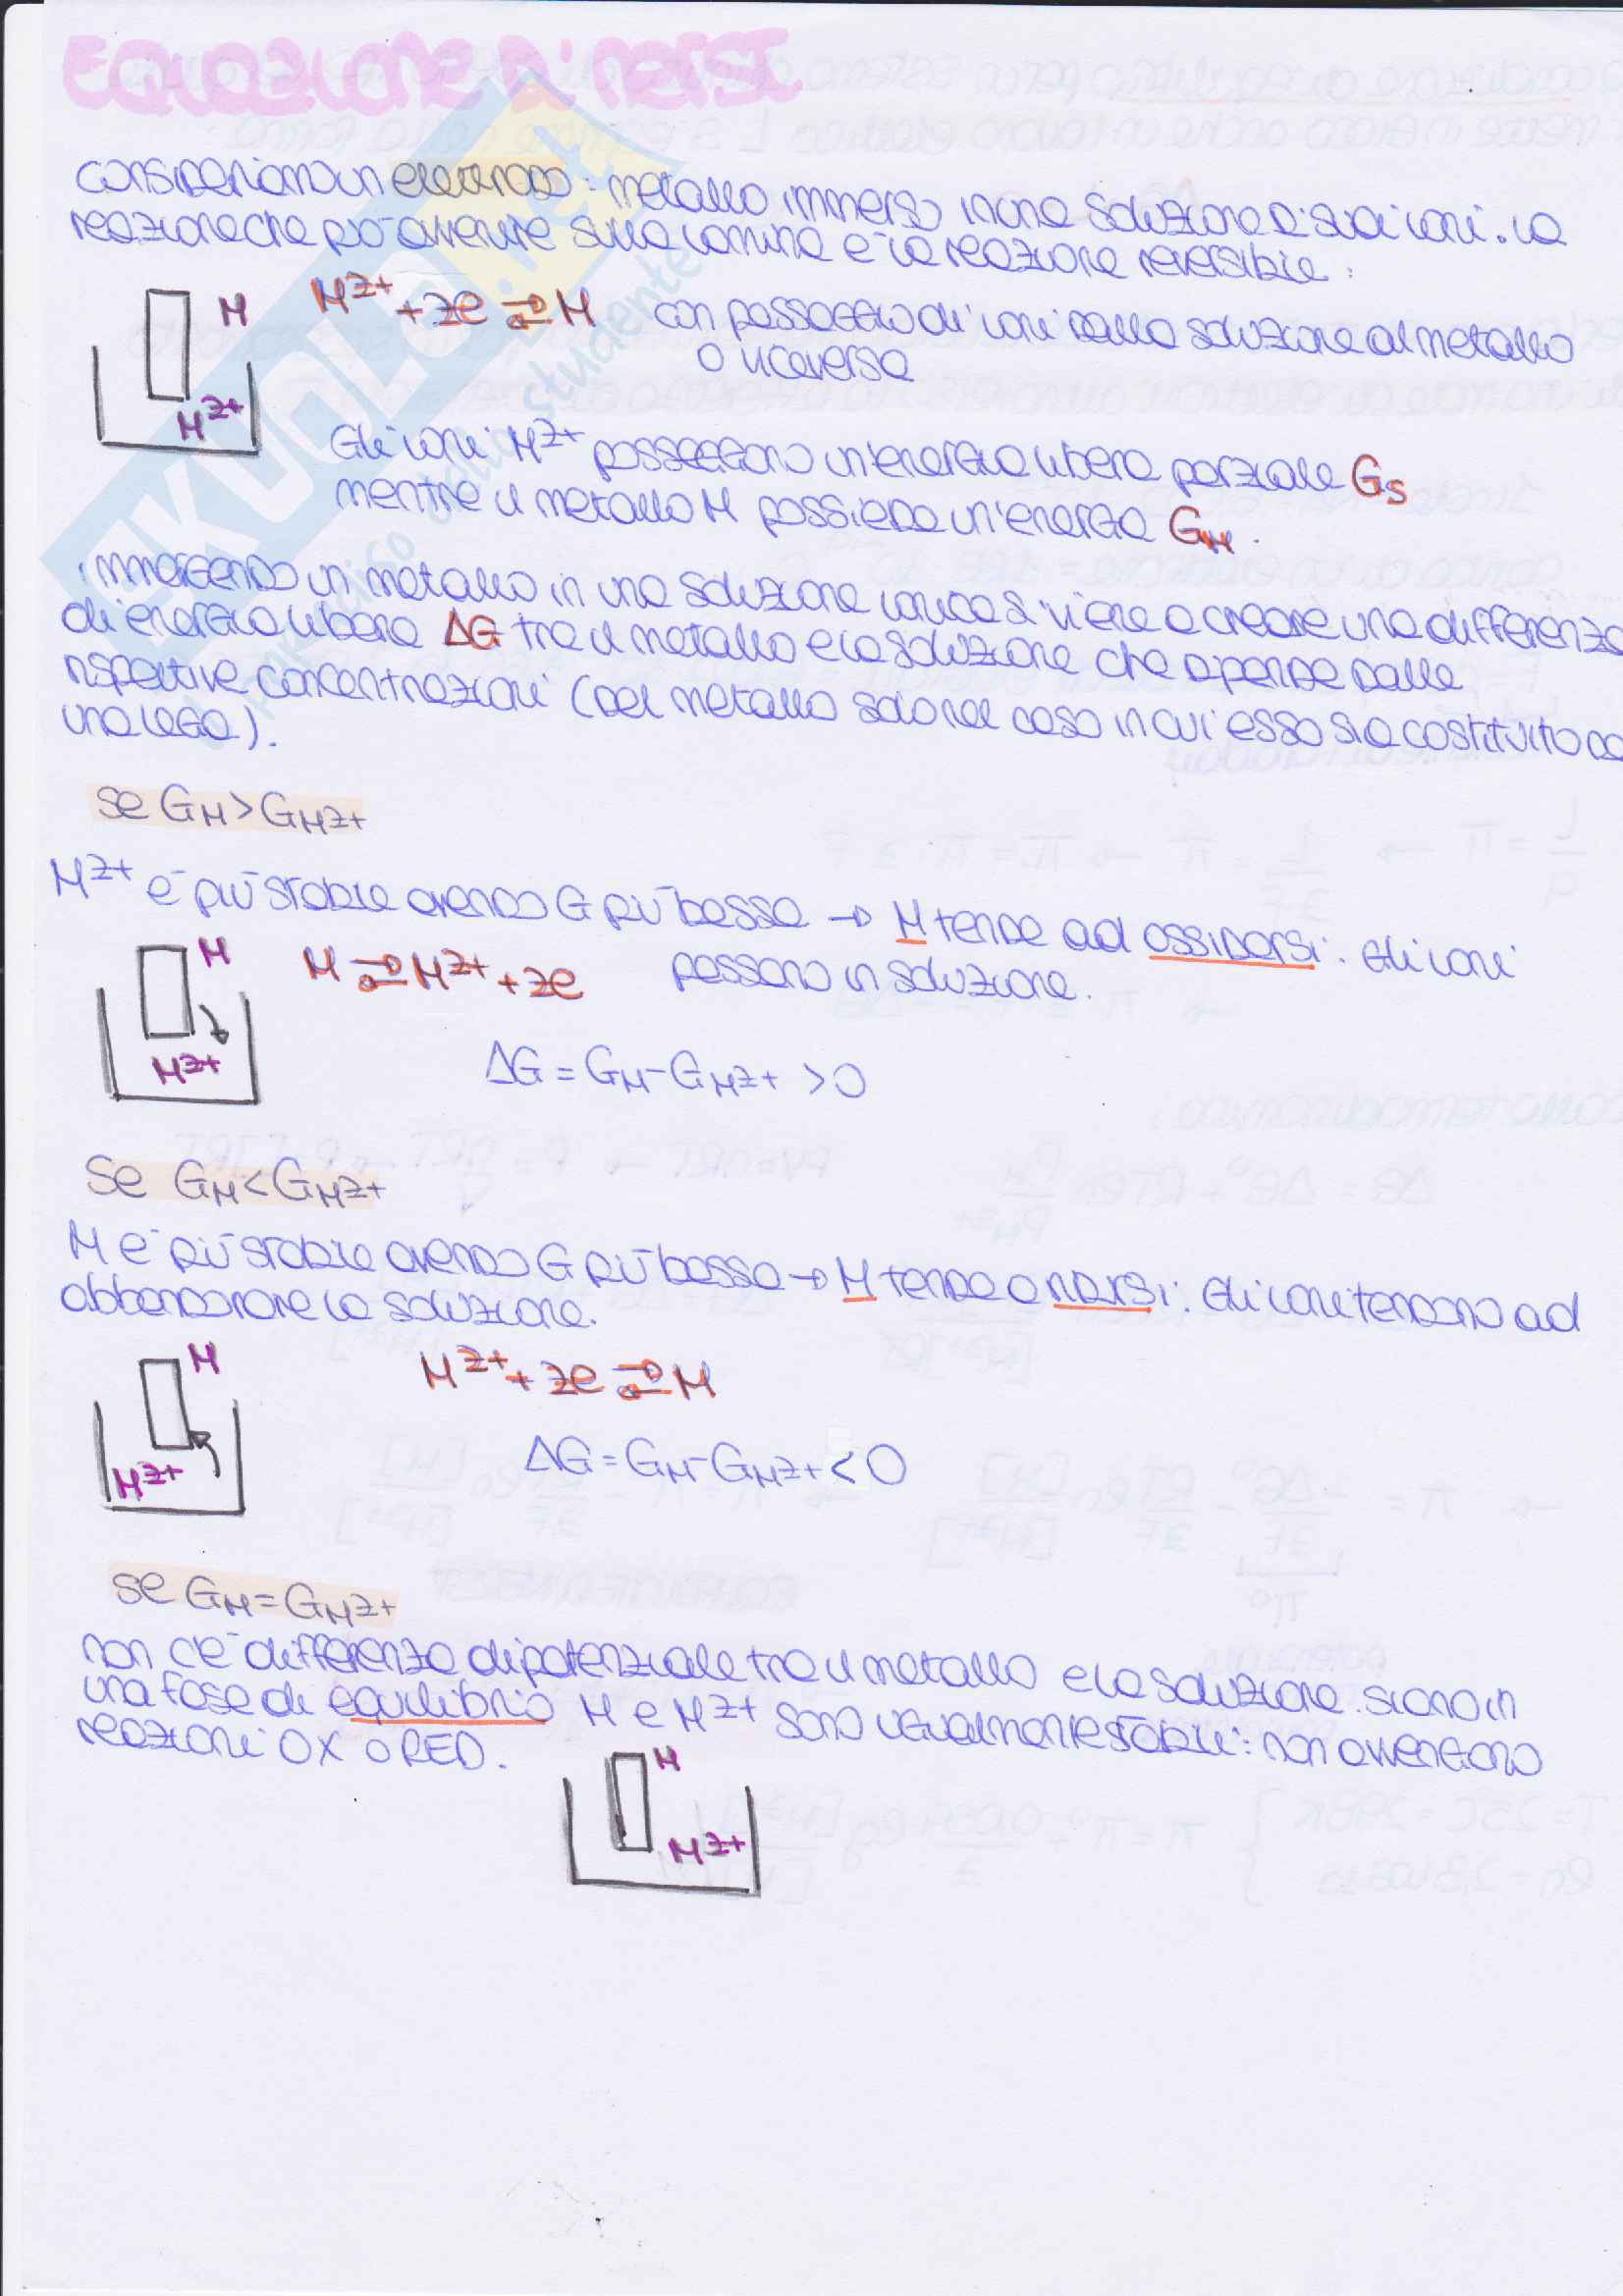 EQUAZIONE DI NERST
CONSIDERIAMO un elettrodo: metallo immerso in una soluzione di suoi ioni. La
reazione che può avvenire sulla lamina è la reazione reversibile:
M
M^{z+} + ze ⇄ M
con passaggio di ioni dalla soluzione al metallo
o viceversa
M^{z+}
Gli ioni M^{z+} posseggono un'energia libera parziale G_S
mentre il metallo M possiede un'energia G_M.
immergendo un metallo in una soluzione ionica si viene a creare una differenza
di energia libera ΔG tra il metallo e la soluzione che dipende dalle
rispettive concentrazioni (del metallo solo nel caso in cui esso sia costituito da
una lega).
se G_M > G_{M^{z+}}
M^{z+} è più stabile avendo G più bassa → M tende ad ossidarsi: gli ioni
passano in soluzione.
M
M ⇄ M^{z+} + ze
M^{z+}
ΔG = G_M - G_{M^{z+}} > 0
Se G_M < G_{M^{z+}}
M è più stabile avendo G più bassa → M tende a ridursi: gli ioni tendono ad
abbandonare la soluzione.
M
M^{z+} + ze ⇄ M
M^{z+}
ΔG = G_M - G_{M^{z+}} < 0
se G_M = G_{M^{z+}}
non c'è differenza di potenziale tra il metallo e la soluzione. siamo in
una fase di equilibrio M e M^{z+} sono ugualmente stabili: non avvengono
reazioni OX o RED.
M
M^{z+}